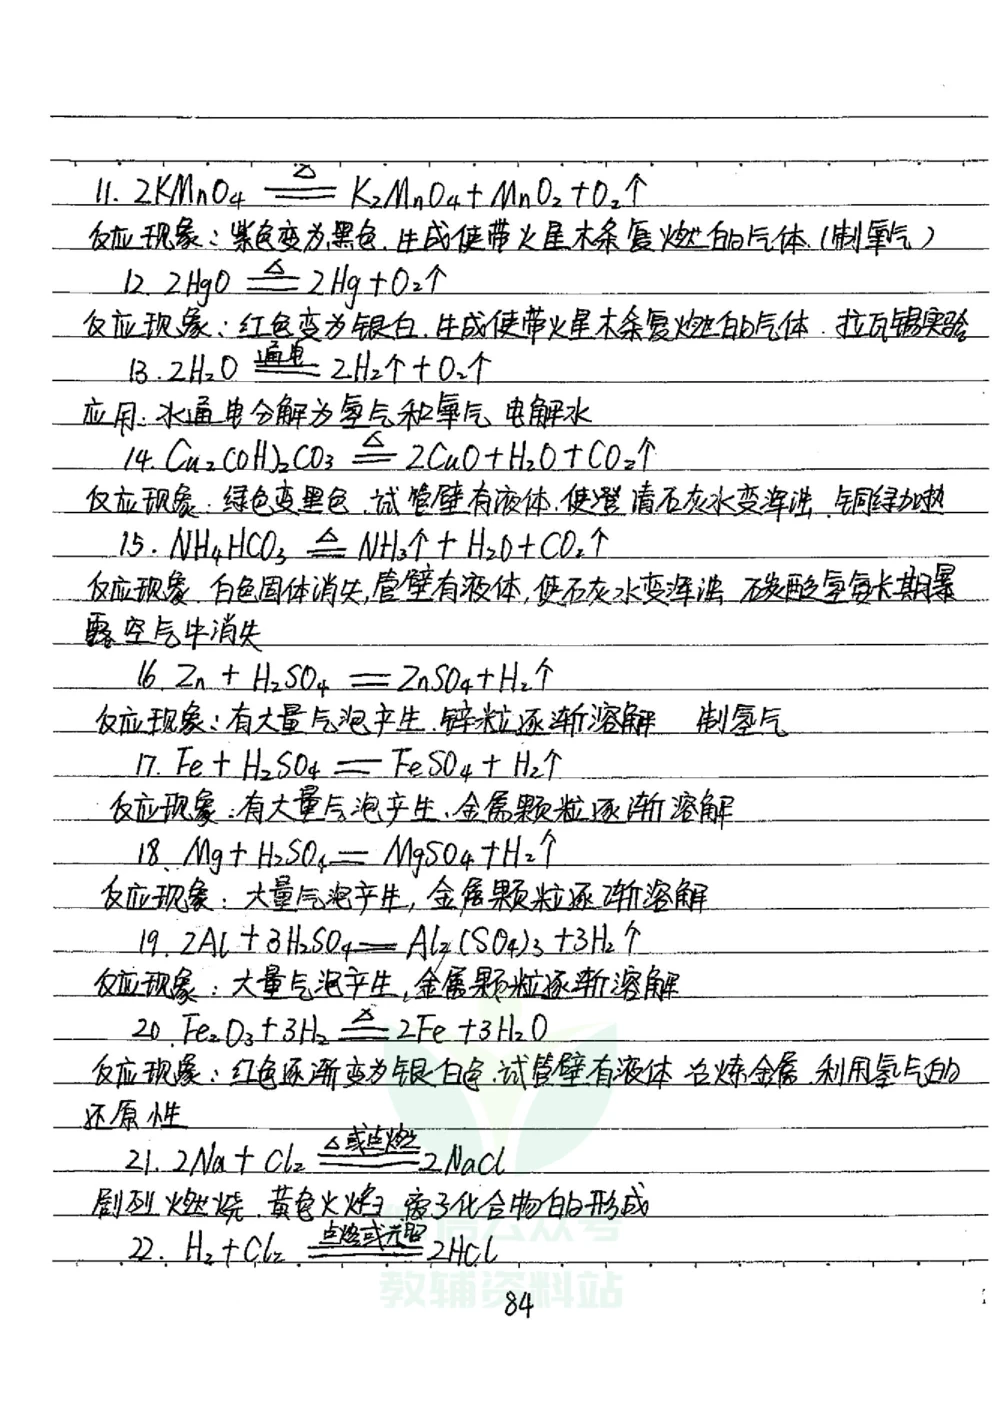 11. 2KMnO4 ≜ K2MnO4+MnO2+O2↑
反应现象：紫色变为黑色．生成使带火星木条复燃的气体．(制氧气)
12. 2HgO ≜ 2Hg+O2↑
反应现象：红色变为银白．生成使带火星木条复燃的气体．拉瓦锡实验
13. 2H2O 通电══ 2H2↑+O2↑
应用：水通电分解为氢气和氧气 电解水
14. Cu2(OH)2CO3 ≜ 2CuO+H2O+CO2↑
反应现象．绿色变黑色．试管壁有液体．使澄清石灰水变浑浊．铜绿加热
15. NH4HCO3 ≜ NH3↑+H2O+CO2↑
反应现象．白色固体消失，管壁有液体，使石灰水变浑浊．碳酸氢铵长期暴
露空气中消失
16. Zn + H2SO4 ══ ZnSO4+H2↑
反应现象：有大量气泡产生．锌粒逐渐溶解 制氢气
17. Fe+H2SO4 ══ FeSO4+H2↑
反应现象：有大量气泡产生．金属颗粒逐渐溶解
18. Mg+H2SO4 ══ MgSO4+H2↑
反应现象：大量气泡产生，金属颗粒逐渐溶解
19. 2Al+3H2SO4 ══ Al2(SO4)3+3H2↑
反应现象：大量气泡产生，金属颗粒逐渐溶解
20. Fe2O3+3H2 ≜ 2Fe+3H2O
反应现象：红色逐渐变为银白色．试管壁有液体 冶炼金属．利用氢气的
还原性
21. 2Na+Cl2 △或点燃══ 2NaCl
剧烈燃烧．黄色火焰 离子化合物的形成
22. H2+Cl2 点燃或光照══ 2HCl
微信公众号
教辅资料站
84